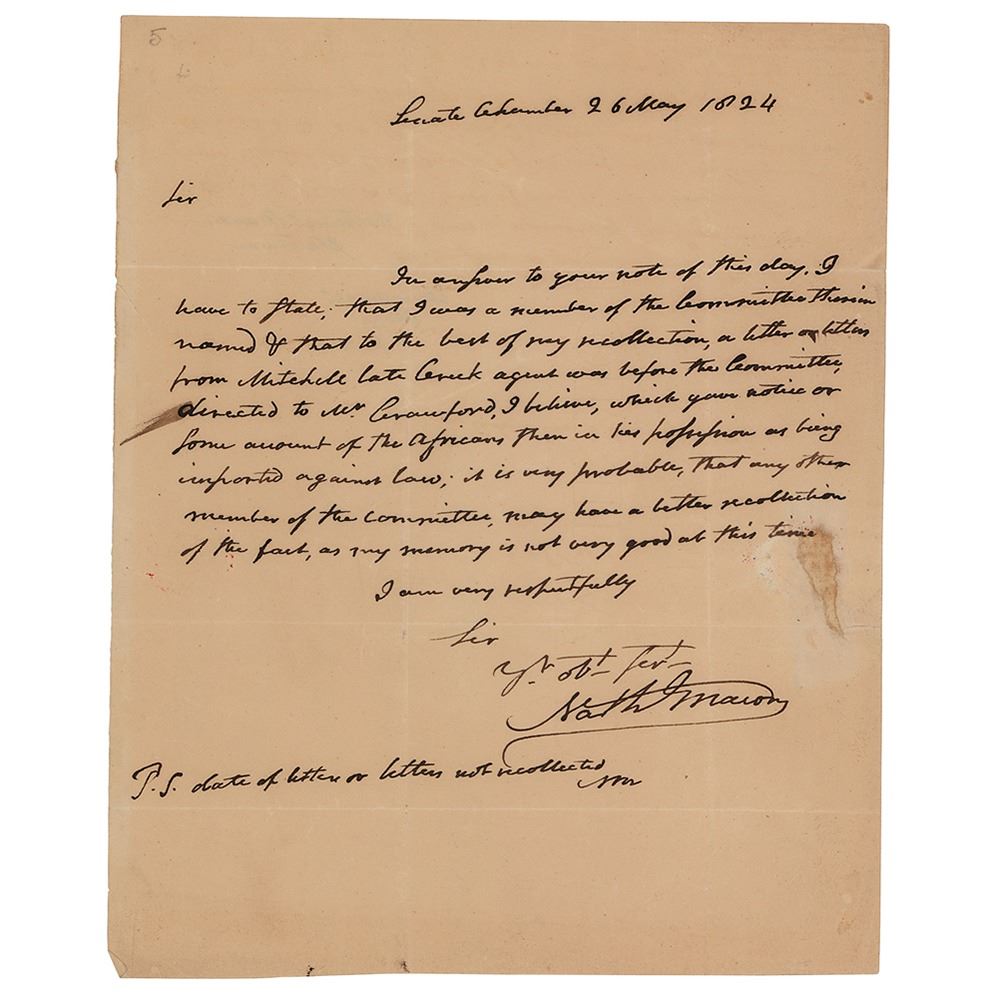 5
Senate Chamber 26 May 1824
Sir
In answer to your note of this day, I
have to state, that I was a member of the Committee therein
named & that to the best of my recollection, a letter or letters
from Mitchell late Creek agent was before the Committee,
directed to Mr Crawford, I believe, which gave notice or
some account of the Africans then in his possession as being
imported against law; it is very probable, that any other
member of the committee, may have a better recollection
of the fact, as my memory is not very good at this time
I am very respectfully
Sir
Yr obt servt
Nathl Macon
P.S. date of letter or letters not recollected
NM